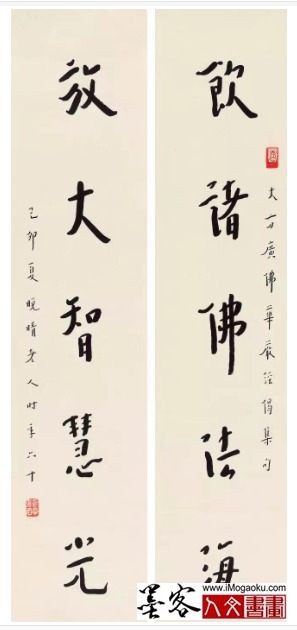 飲諸佛法海
大方廣佛華嚴經偈集句
放大智慧光
己卯夏晚晴老人時年六十
www.iMogaoku.com
墨客
人文書畫